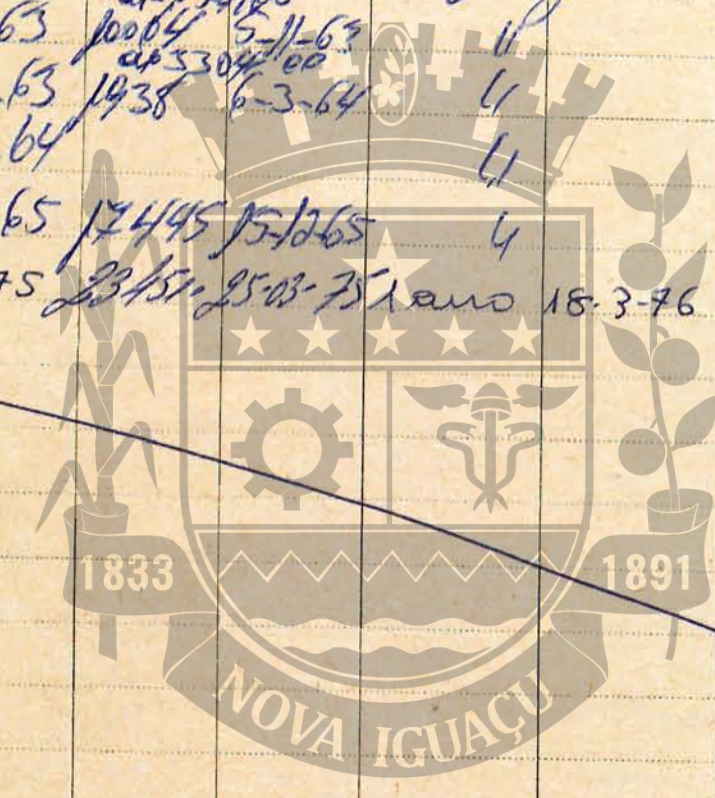 63 10004 5-11-63 "
63 1938 6-3-64 "
64 "
65 17445 15-12-65 "
75 23151 25-03-75 1 ano 18-3-76
1833 1891
NOVA IGUAÇU